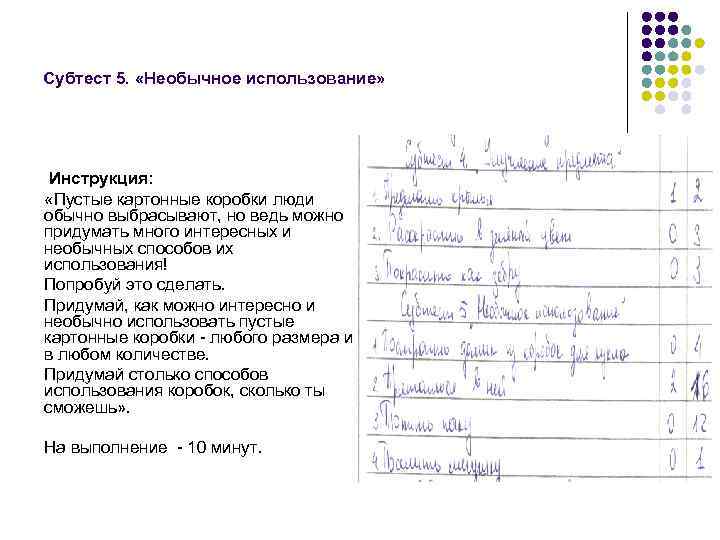 Субтест 5. «Необычное использование»
Инструкция:
«Пустые картонные коробки люди
обычно выбрасывают, но ведь можно
придумать много интересных и
необычных способов их
использования!
Попробуй это сделать.
Придумай, как можно интересно и
необычно использовать пустые
картонные коробки - любого размера и
в любом количестве.
Придумай столько способов
использования коробок, сколько ты
сможешь».
На выполнение - 10 минут.
Субтест 4. Улучшение предмета"
1. 1 2
2. Раскрасить в зелёный цвет 0 3
3. Покрасить как зебру 0 3
Субтест 5. Необычное использование"
1. Построить домик из коробок для кукол 0 4
2. Прятаться в ней 2 16
3. 0 12
4. 0 1